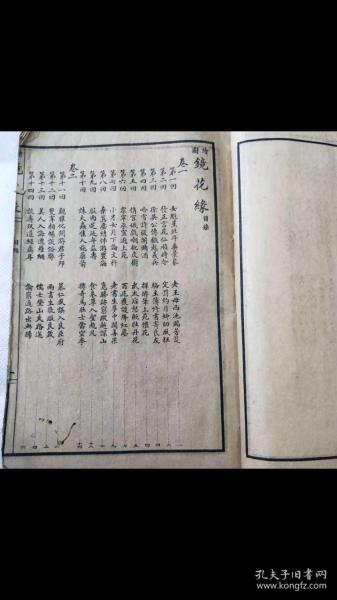 繪圖鏡花緣目錄
卷一
第一回 女魁星北斗垂景象 老王母西池賜芳筵
第二回 發正言花仙順時令 定罰約月姊助風狂
第三回 徐英公傳檄起義兵 駱主簿修書寄良友
第四回 吟雪詩暖閣賭酒 揮醉筆上苑催花
第五回 俏宮娥戲誇皮樹 武太后怒貶牡丹花
第六回 眾宰承宣遊上苑 百花獲譴降紅塵
第七回 小才女月下論文科 老書生夢中聞善果
第八回 棄囂塵結伴遊寰海 覓勝蹟窮蹤越遠山
第九回 服肉芝延年益壽 食朱草入聖超凡
第十回 誅大蟲佳人施藥箭 搏奇鳥壯士奮空拳
卷二
第十一回 觀雅化閒遊君子邦 慕仁風誤入良臣府
第十二回 雙宰輔暢談俗弊 兩書生敬服良箴
第十三回 美人入海遭羅網 儒士登山失路迷
第十四回 談壽夭道經聶耳 論窮通路出無腸
孔夫子旧书网